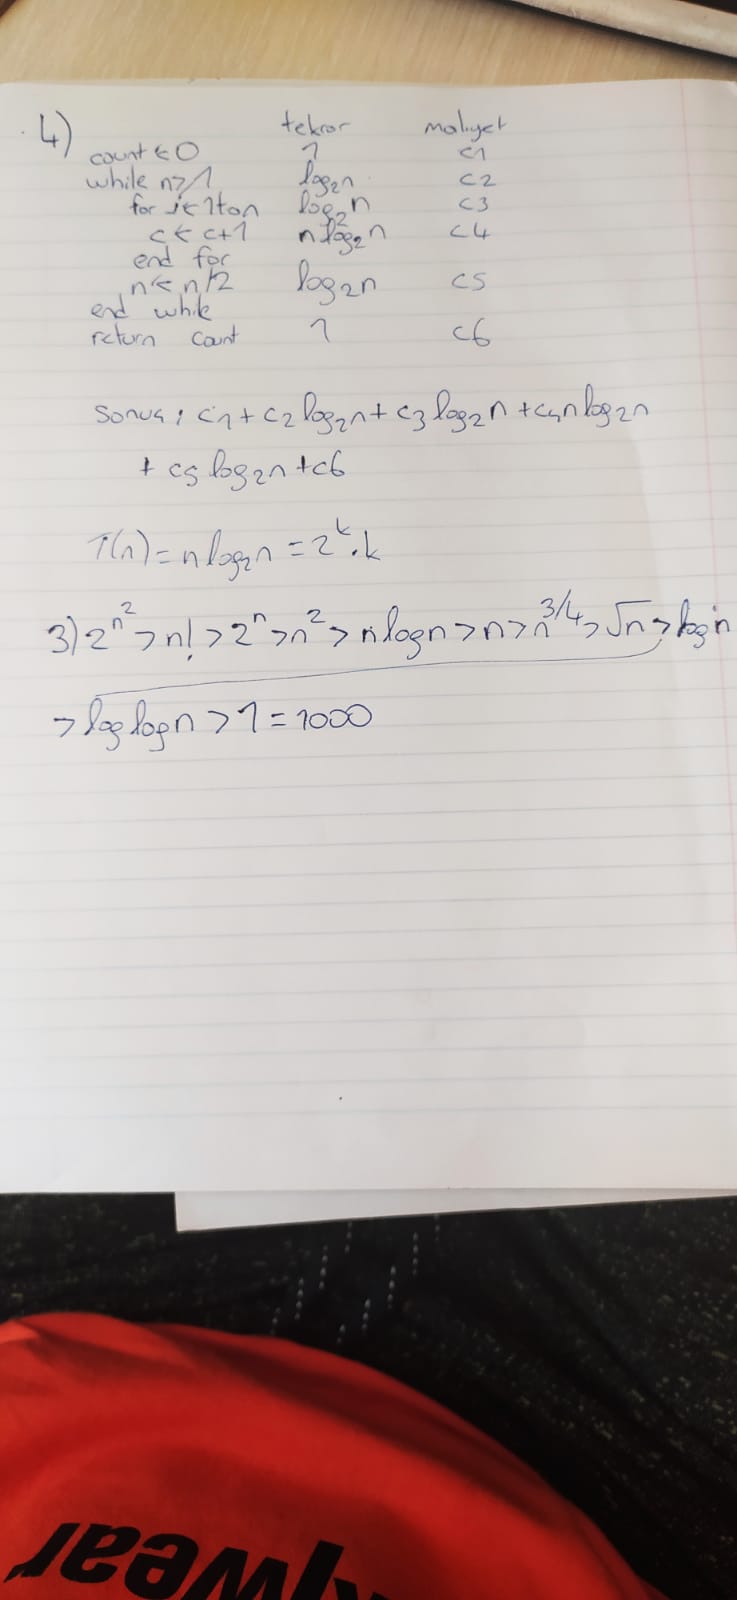 4) tekrar maliyet
count ← 0 1 c1
while n>1 log₂n c2
for j←1 to n log₂n c3
c ← c+1 nlog₂n c4
end for
n ← n/2 log₂n c5
end while
return count 1 c6
Sonuç : c1 + c2 log₂n + c3 log₂n + c4nlog₂n
+ c5 log₂n + c6
T(n) = nlog₂n = 2ᵏ.k
3) 2^n² > n! > 2ⁿ > n² > nlogn > n > n^3/4 > √n > logn
> loglogn > 1 = 1000
wear